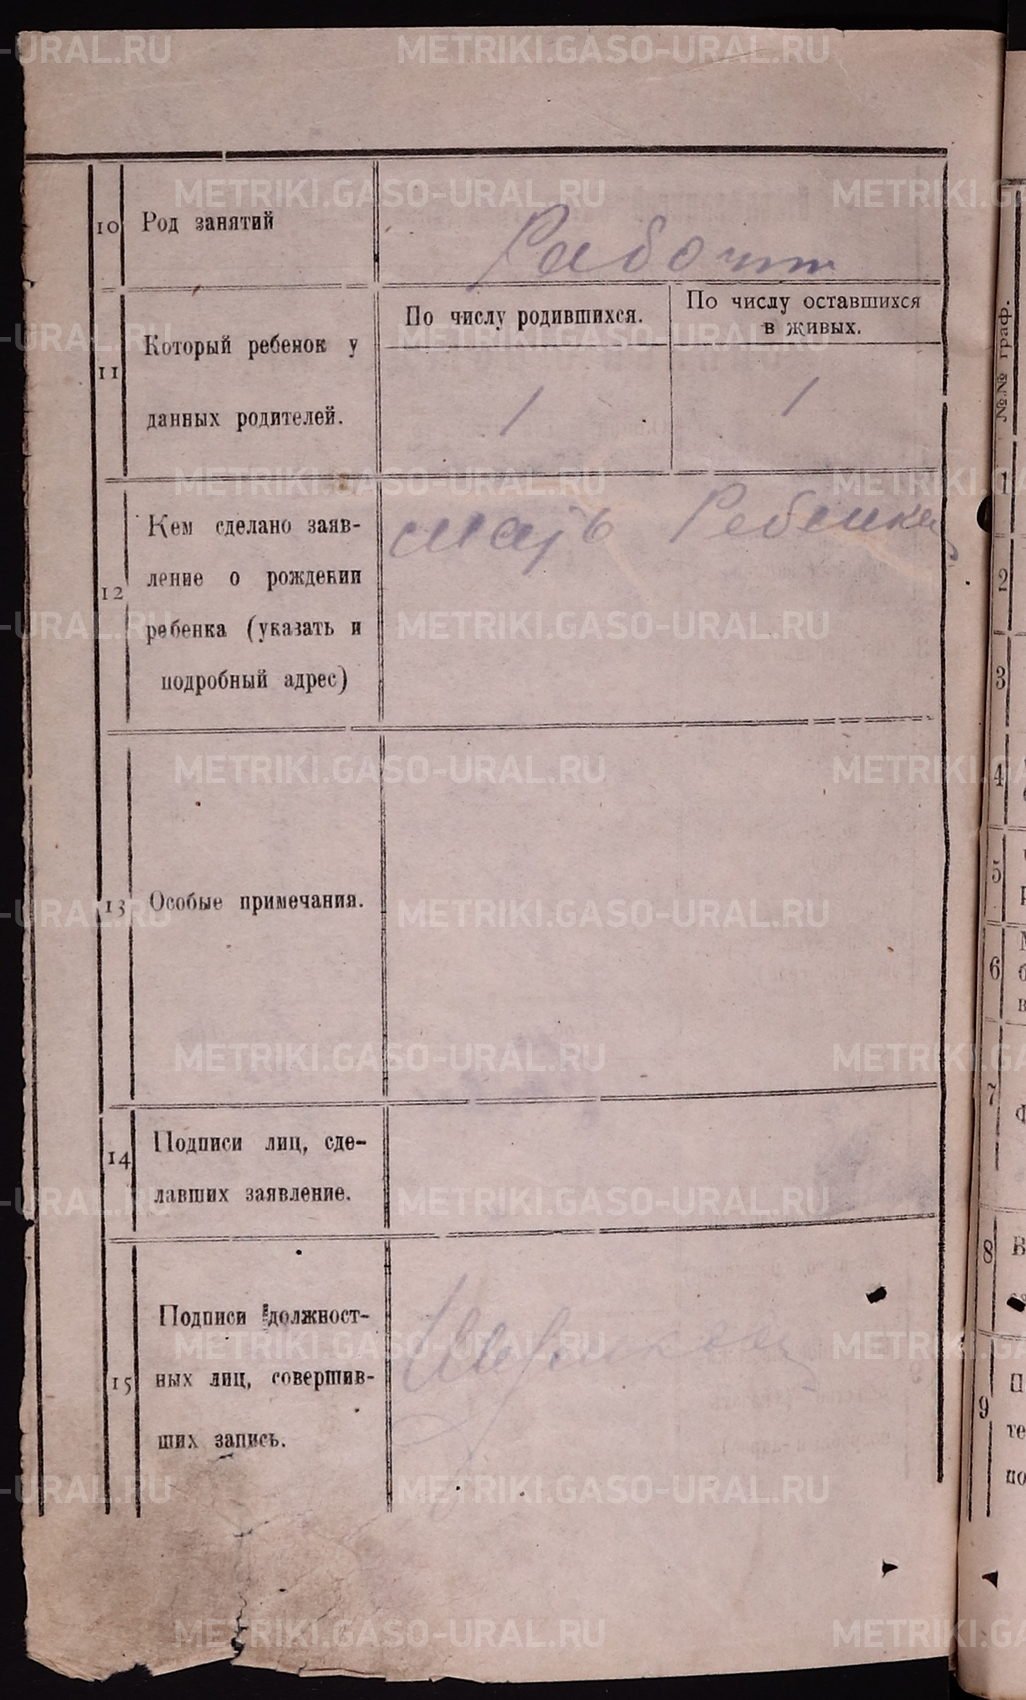 METRIKI.GASO-URAL.RU
10 Род занятий
Рабочий
11 Который ребенок у
данных родителей.
По числу родившихся.
По числу оставшихся
в живых.
1
1
12 Кем сделано заяв-
ление о рождении
ребенка (указать и
подробный адрес)
мать Ребенка
13 Особые примечания.
14 Подписи лиц, сде-
лавших заявление.
15 Подписи должност-
ных лиц, совершив-
ших запись.
№№ граф.
1
2
3
4
5
6
7
8
9